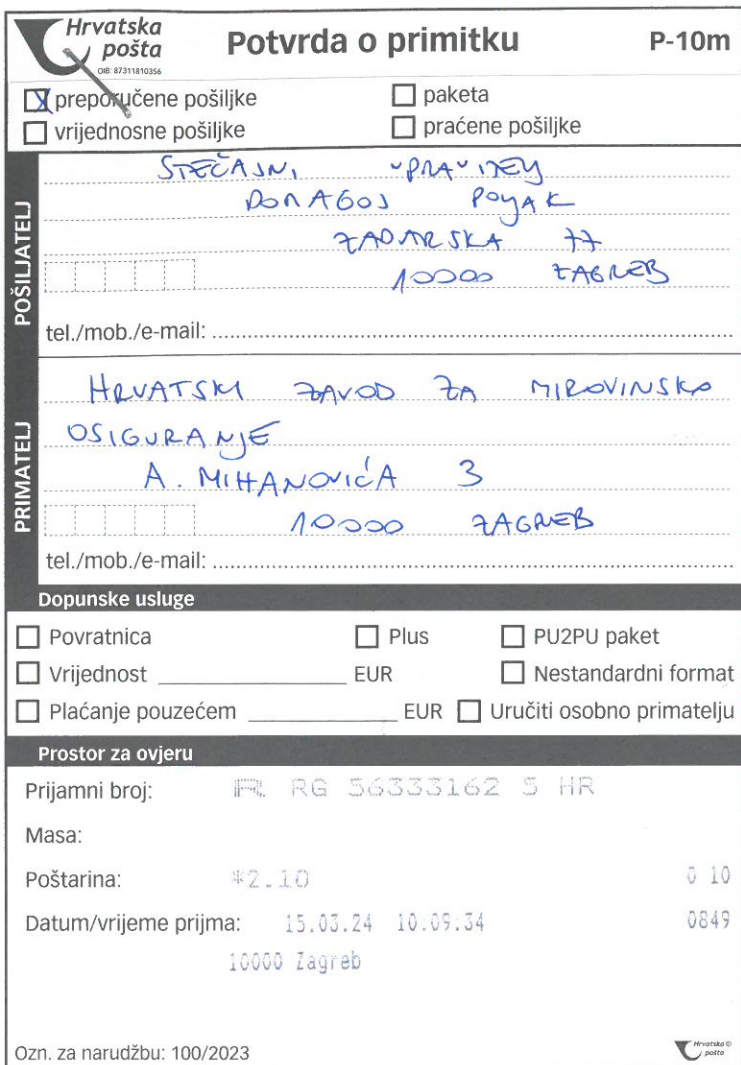 Hrvatska pošta
OIB: 87311810356
Potvrda o primitku
P-10m
X preporučene pošiljke
paketa
vrijednosne pošiljke
praćene pošiljke
POŠILJATELJ
STEČAJNI UPRAVITELJ
DOMAGOJ POLJAK
ZADARSKA 77
10000 ZAGREB
tel./mob./e-mail:
PRIMATELJ
HRVATSKI ZAVOD ZA MIROVINSKO
OSIGURANJE
A. MIHANOVIĆA 3
10000 ZAGREB
tel./mob./e-mail:
Dopunske usluge
Povratnica
Plus
PU2PU paket
Vrijednost EUR
Nestandardni format
Plaćanje pouzećem EUR
Uručiti osobno primatelju
Prostor za ovjeru
Prijamni broj: R RG 56333162 5 HR
Masa:
Poštarina: *2.10 0 10
Datum/vrijeme prijma: 15.03.24 10:09:34 0849
10000 Zagreb
Ozn. za narudžbu: 100/2023
Hrvatska pošta ©